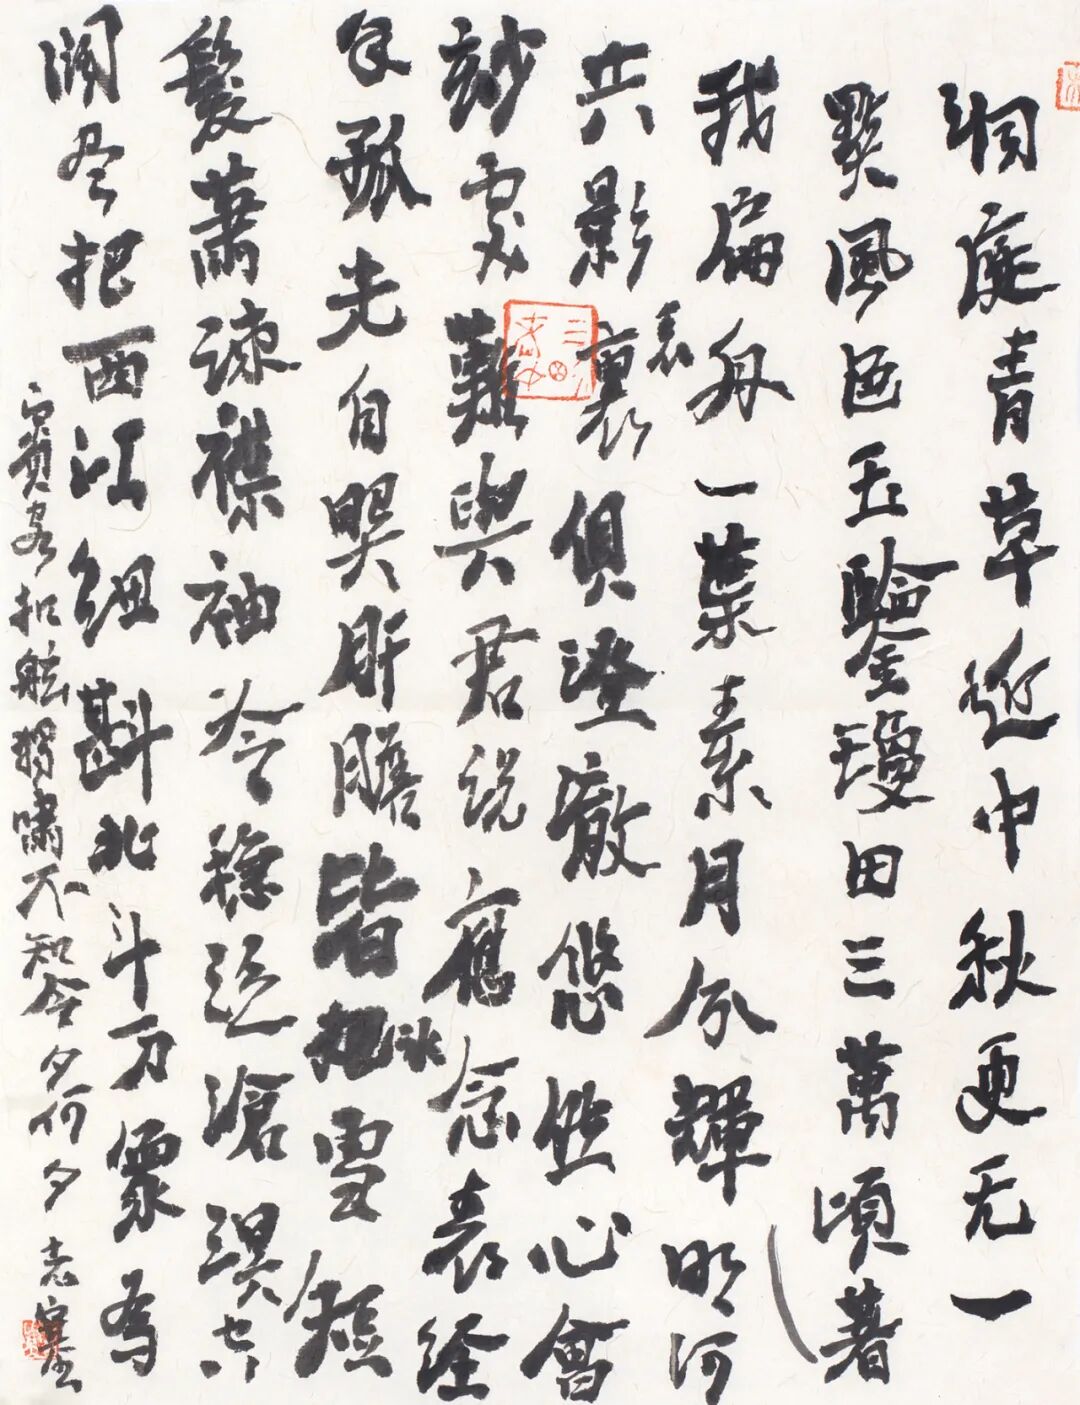 洞庭青草近中秋更无一
點風色玉鑒瓊田三萬頃著
我扁舟一葉素月分輝明河
共影表裏俱澄澈悠然心會
妙處難與君説應念表經
年孤光自照肝膽皆冰雪短
髮蕭疎襟袖冷穩泛滄溟空
闊尽把西江細斟北斗万象為
賓客扣舷獨嘯不知今夕何夕 老